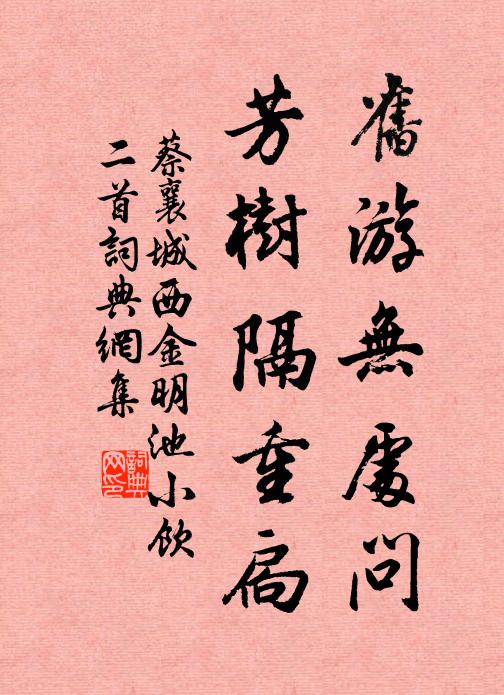 舊游無處問
芳樹隔重扃
蔡襄城西金明池小飲
二首詞典網集
詞典網印